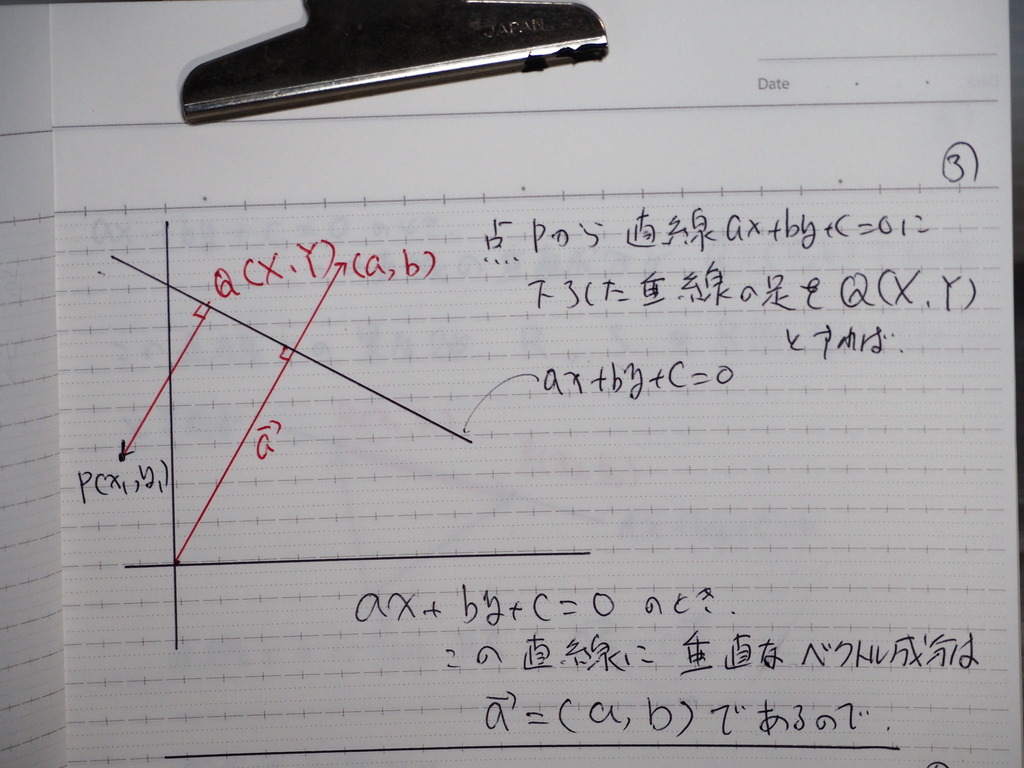 JAPAN
Date
③
点Pから 直線ax+by+c=0に
下ろした垂線の足をQ(X,Y)
とすれば.
Q(X,Y)
(a,b)
ax+by+c=0
a⃗
P(x₁,y₁)
ax+by+c=0 のとき.
この直線に 垂直な ベクトル成分は
a⃗=(a,b)であるので.